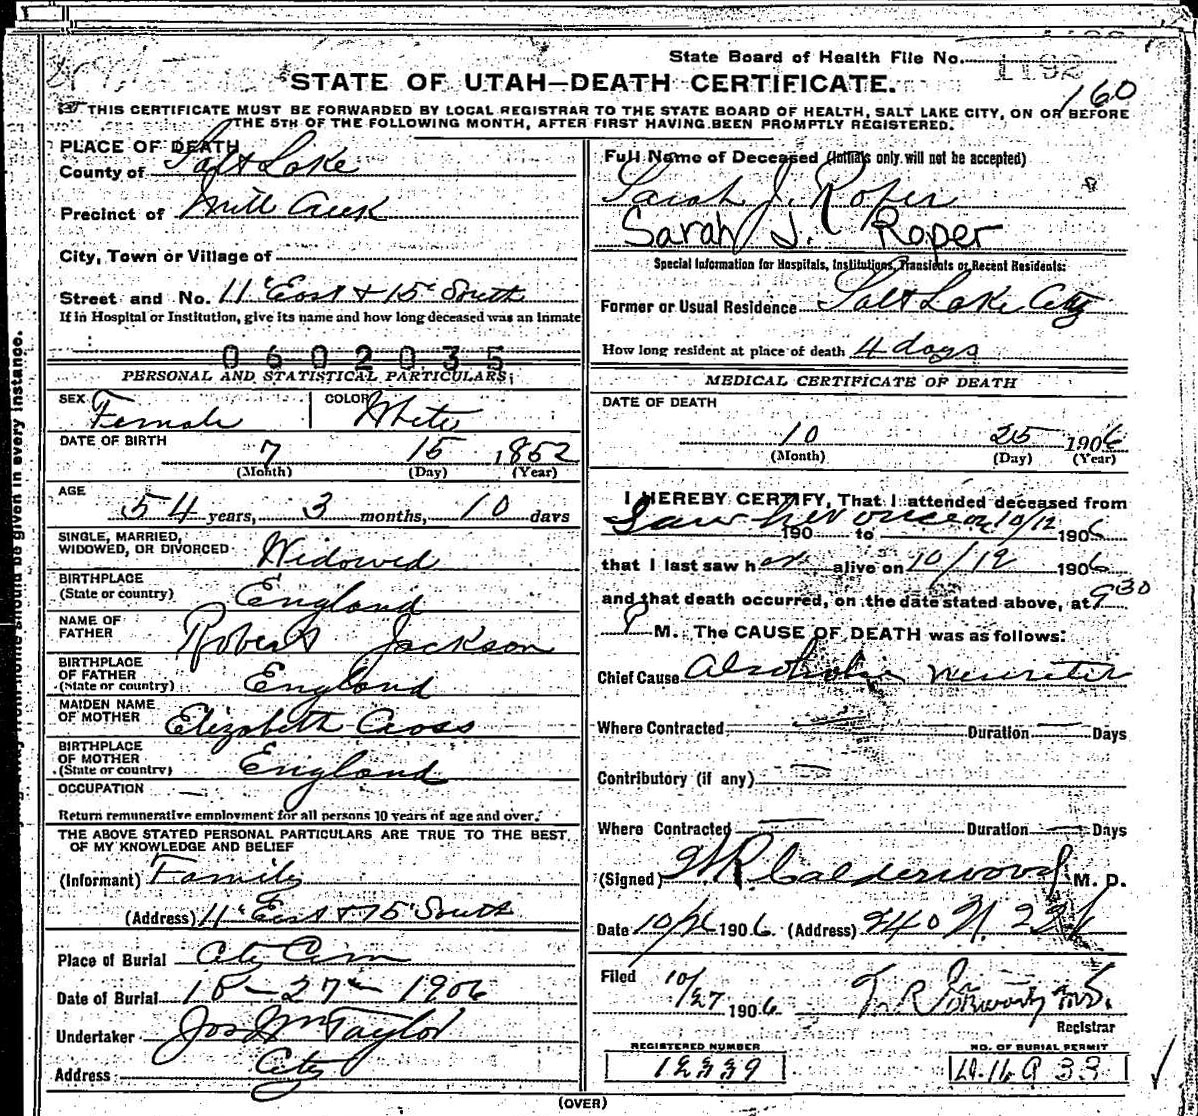 State Board of Health File No. 1192
STATE OF UTAH—DEATH CERTIFICATE.
160
THIS CERTIFICATE MUST BE FORWARDED BY LOCAL REGISTRAR TO THE STATE BOARD OF HEALTH, SALT LAKE CITY, ON OR BEFORE
THE 5TH OF THE FOLLOWING MONTH, AFTER FIRST HAVING BEEN PROMPTLY REGISTERED.
PLACE OF DEATH
County of Salt Lake
Precinct of Mill Creek
City, Town or Village of
Street and No. 11" East & 15" South
If in Hospital or Institution, give its name and how long deceased was an inmate
0602035
PERSONAL AND STATISTICAL PARTICULARS
SEX Female COLOR White
DATE OF BIRTH 7 15 1852
(Month) (Day) (Year)
AGE
54 years, 3 months, 10 days
SINGLE, MARRIED,
WIDOWED, OR DIVORCED Widowed
BIRTHPLACE
(State or country) England
NAME OF
FATHER Robert Jackson
BIRTHPLACE
OF FATHER
(State or country) England
MAIDEN NAME
OF MOTHER Elizabeth Cross
BIRTHPLACE
OF MOTHER
(State or country) England
OCCUPATION —
Return remunerative employment for all persons 10 years of age and over.
THE ABOVE STATED PERSONAL PARTICULARS ARE TRUE TO THE BEST
OF MY KNOWLEDGE AND BELIEF
(Informant) Family
(Address) 11" East & 15" South
Place of Burial City Cem
Date of Burial 10 – 27 – 1906
Undertaker Jos Wm Taylor
Address City
Full Name of Deceased (Initials only will not be accepted)
Sarah J. Roper
Sarah J. Roper
Special Information for Hospitals, Institutions, Transients or Recent Residents:
Former or Usual Residence Salt Lake City
How long resident at place of death 4 days
MEDICAL CERTIFICATE OF DEATH
DATE OF DEATH
10 25 1906
(Month) (Day) (Year)
I HEREBY CERTIFY, That I attended deceased from
Saw her once on 10/12
190 to 1906
that I last saw her alive on 10/12 1906
and that death occurred, on the date stated above, at 9 30
P M. The CAUSE OF DEATH was as follows:
Chief Cause Alcoholic neuritis
Where Contracted Duration — Days
Contributory (if any) —
Where Contracted — Duration — Days
(Signed) W R Calderwood M. D.
Date 10/ 1906. (Address) 240 N. 2
Filed 10/27 1906 M.D.
Registrar
REGISTERED NUMBER
12339
NO. OF BURIAL PERMIT
33
(OVER)